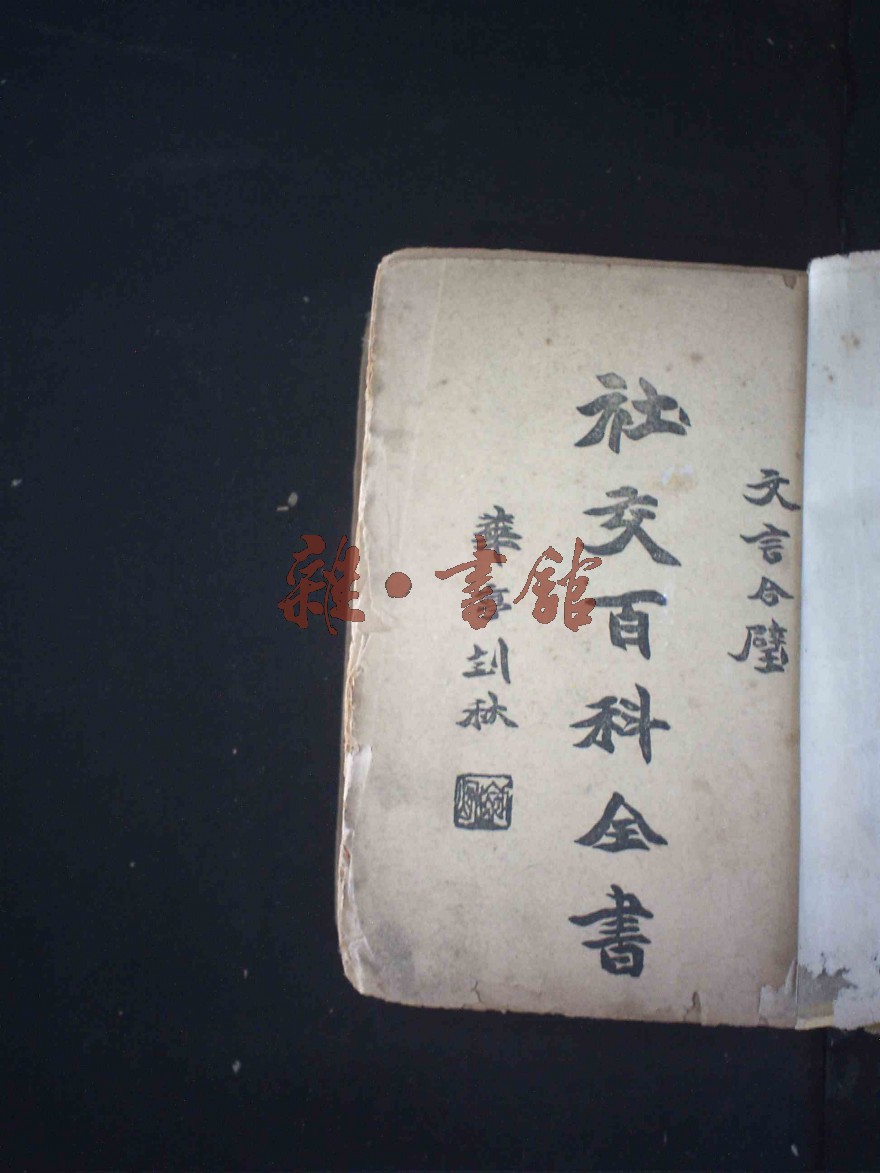 文言合璧
社交百科全書
華亭釗秋
雜·書館